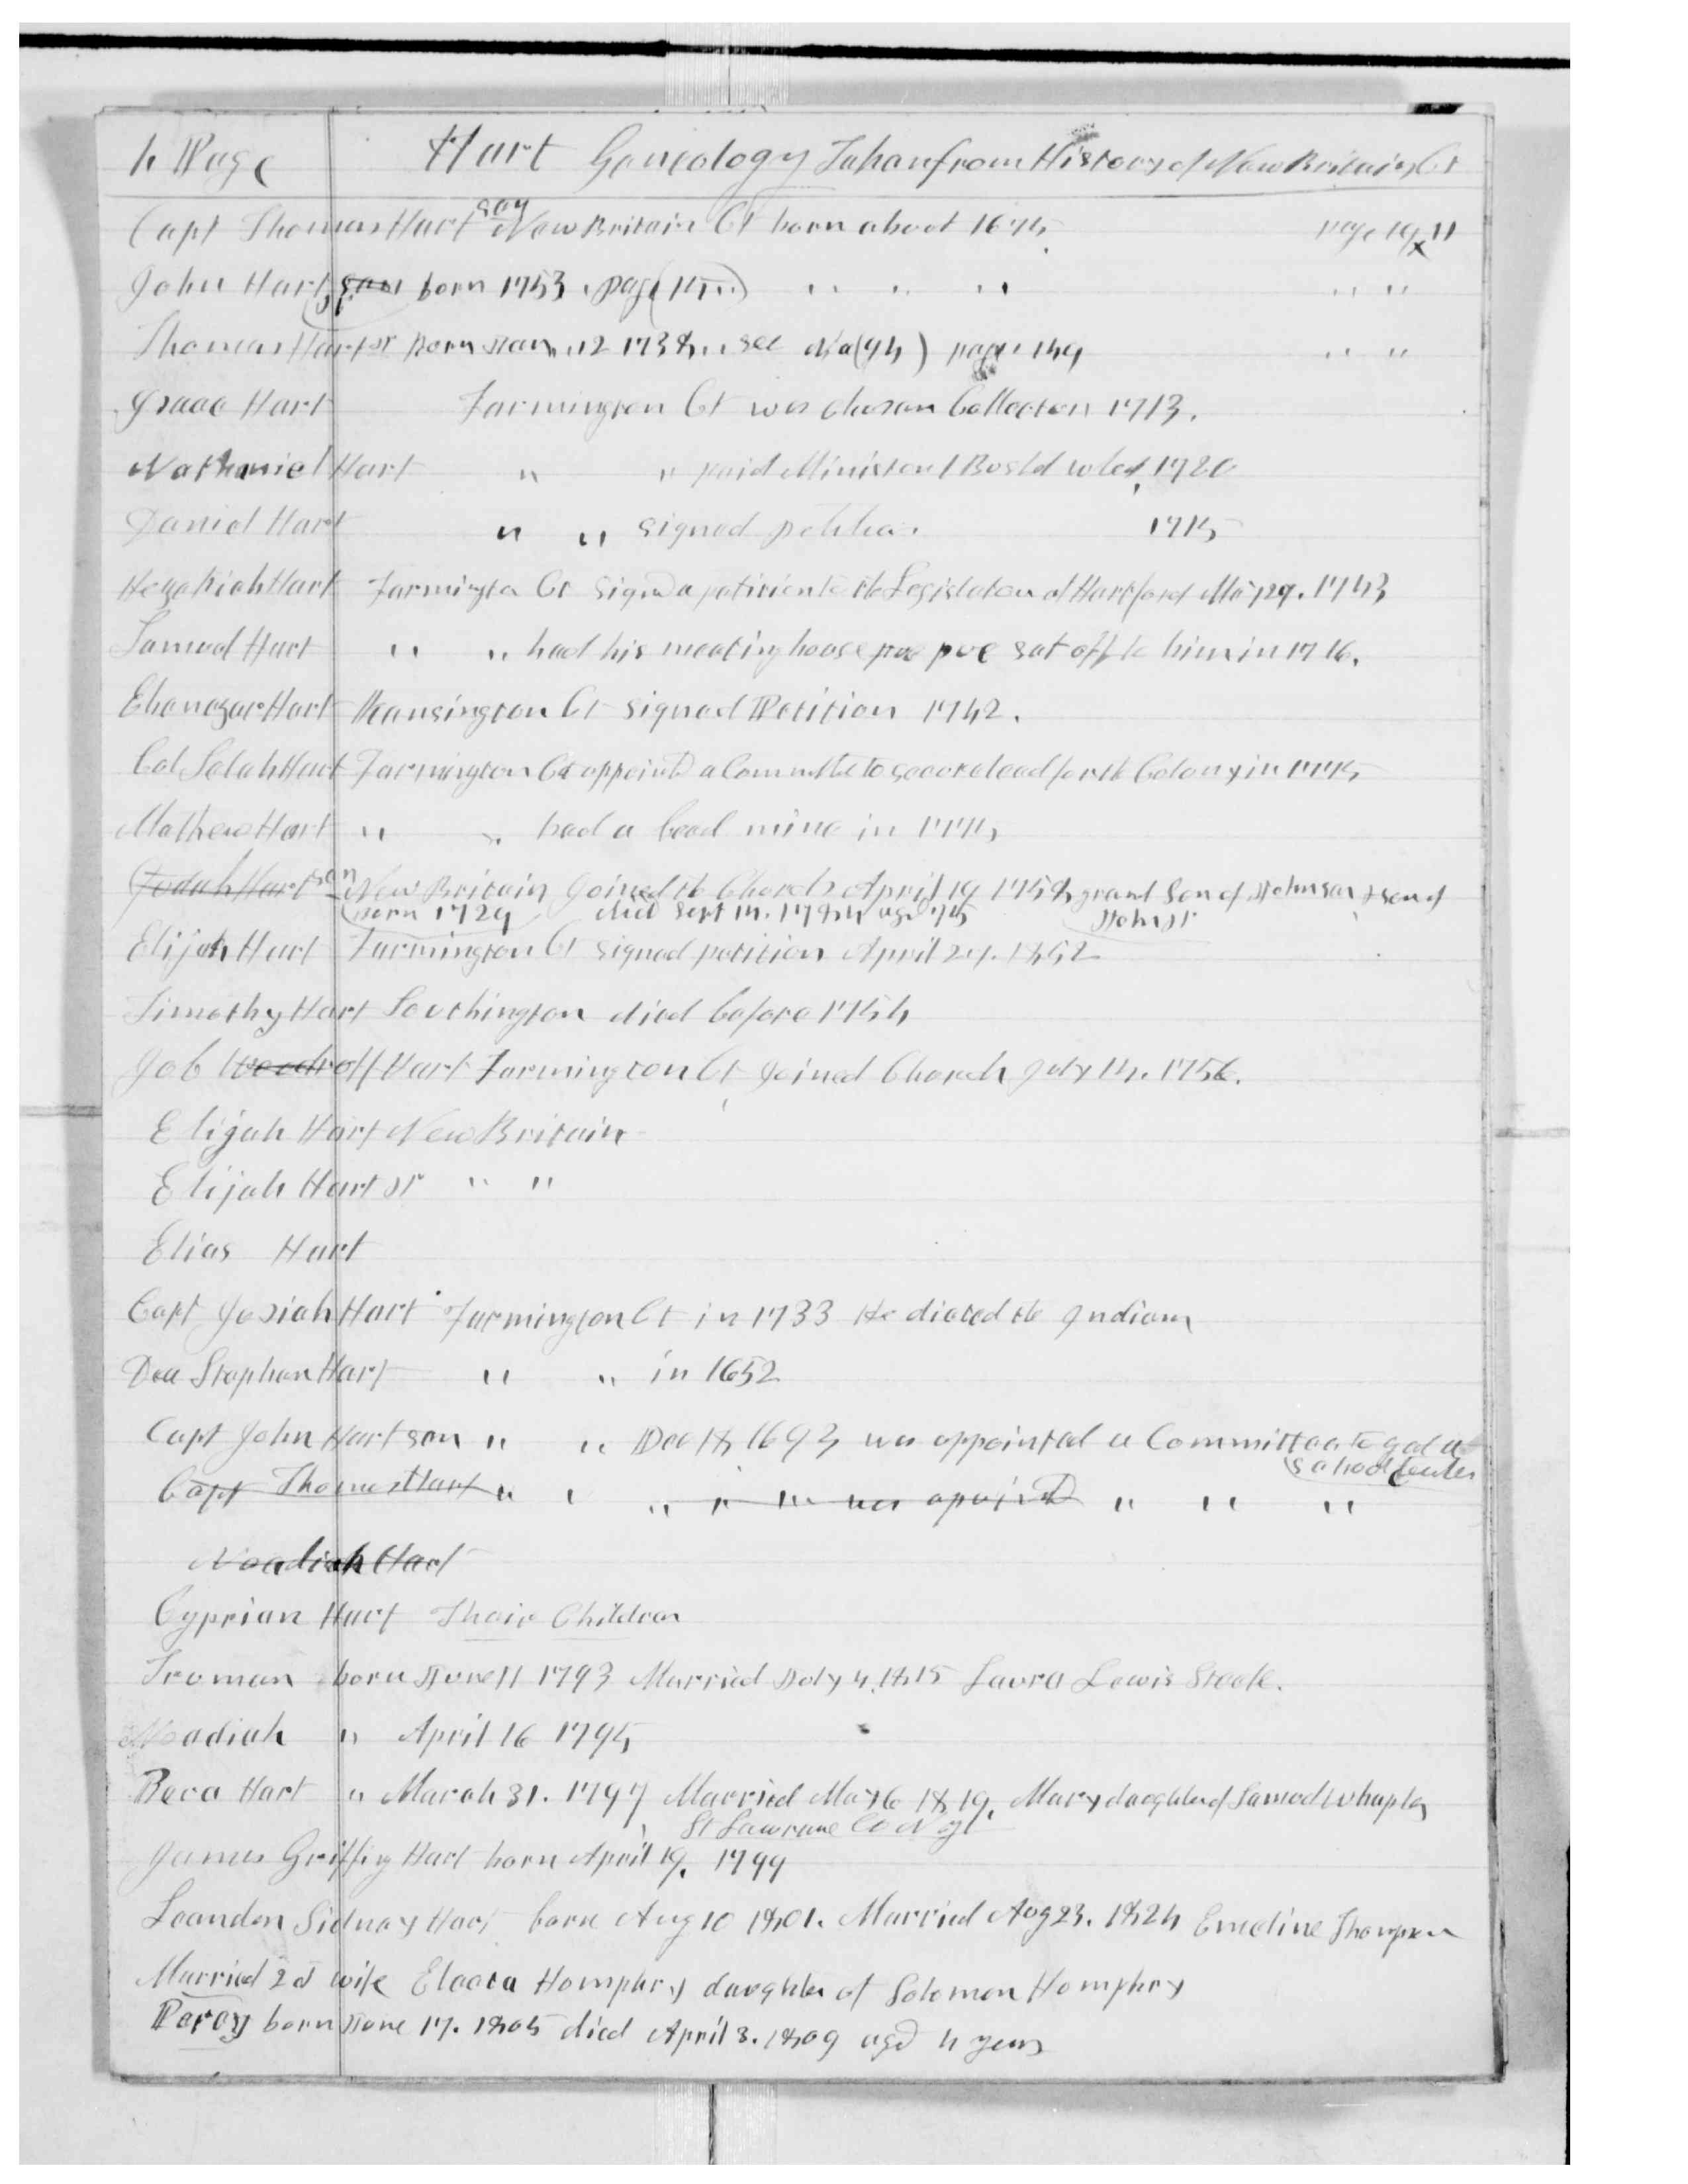 4 Page Hart Geneology Taken from History of New Britain, Ct
Capt Thomas Hart say New Britain Ct born about 1675 page 19 x 11
John Hart Jr born 1753 . page (15..) " " " " "
Thomas Hart Jr Born Jan. 12 1738 . see No (94) page 149 " "
Isaac Hart Farmington Ct was chosen Collector 1713.
Nathaniel Hart " " paid Minister 1720
Daniel Hart " " signed petition 1715
Hezekiah Hart Farmington Ct Signed a petition to the Legislature at Hartford May 29. 1743
Samuel Hart " " had his meeting house pue set off to him in 1716.
Ebenezer Hart Kensington Ct signed Petition 1742.
Col Selah Hart Farmington Ct appointd a Committe to secore lead for the Colony in 1775
Mathew Hart " " had a lead mine in 1775
Judah Hart son New Britain Joined the Church April 19 1758 grand Son of John sen & son of
born 1729 died Sept 14. 1784 age 75 John Jr
Elijah Hart Farmington Ct signed petition April 24. 1852
Timothy Hart Southington died before 1754
Job Woodroff Hart Farmington Ct Joined Church July 14. 1756.
Elijah Hart New Britain
Elijah Hart Jr " "
Elias Hart
Capt Josiah Hart Farmington Ct in 1733 He dieted the Indians
Dea Stephen Hart " " in 1652
Capt John Hart son " " Dec 18 1693 was appointed a Committee to get a
school teacher
Capt Thomas Hart " " " " " was apointd " " "
Noadiah Hart
Cyprian Hart Their Children
Troman born June 11 1793 Married July 4. 1815 Laura Lewis Steele.
Noadiah " April 16 1795
Beca Hart " March 31. 1797 Married May 6 1819. Mary daughter of Samuel Whaples
St Lawrence Co N Y
James Griffin Hart born April 19. 1799
Leander Sidney Hart born Aug 10 1801. Married Aug 23. 1824 Emeline Thompson
Married 2d wife Electa Homphry daughter of Solomon Homphry
Percy born June 17. 1805 died April 3. 1809 agd 4 years